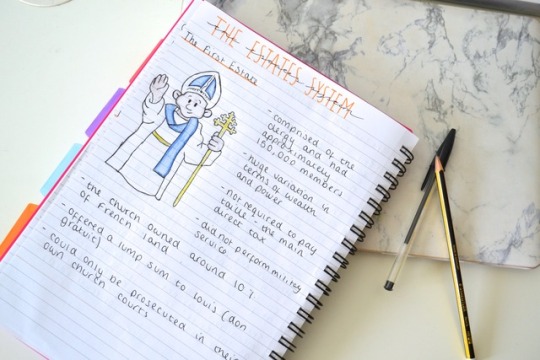 THE ESTATES SYSTEM
The First Estate
- comprised of the
clergy and had
approximately
130,000 members
- huge variation in
terms of wealth
and power
- not required to pay
taille - the main
direct tax
- did not perform military
service
- the church owned around 10%
of French land
- offered a lump sum to Louis (don
gratuit)
- could only be prosecuted in their
own church courts